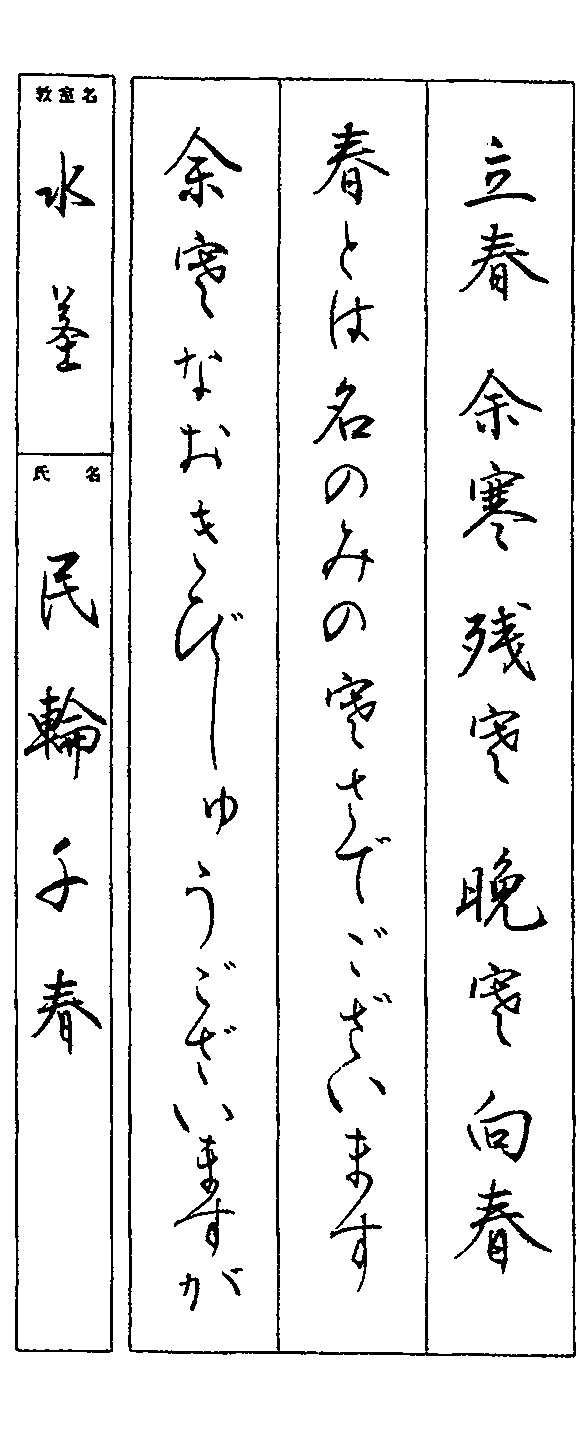 立春 余寒 残寒 晩寒 向春
春とは名のみの寒さでございます
余寒なおきびしゅうございますが
教室名
水茎
氏名
民輪千春